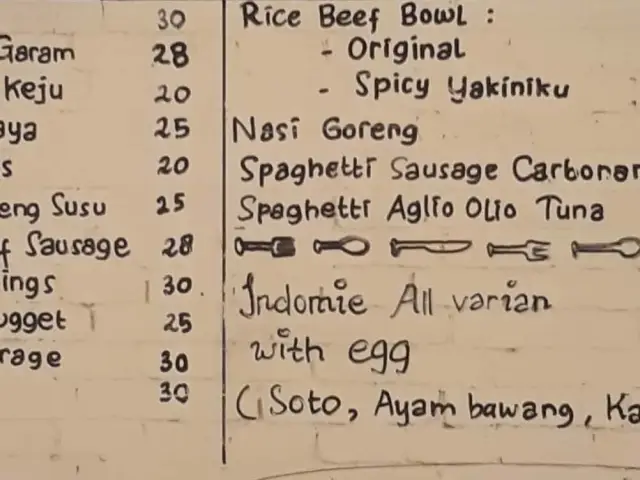 30
Garam 28
Keju 20
aya 25
s 20
eng Susu 25
f Sausage 28
ings 30
ugget 25
rage 30
30
Rice Beef Bowl :
- Original
- Spicy Yakiniku
Nasi Goreng
Spaghetti Sausage Carbonar
Spaghetti Aglio Olio Tuna
Indomie All varian
with egg
( Soto, Ayam bawang, Ka